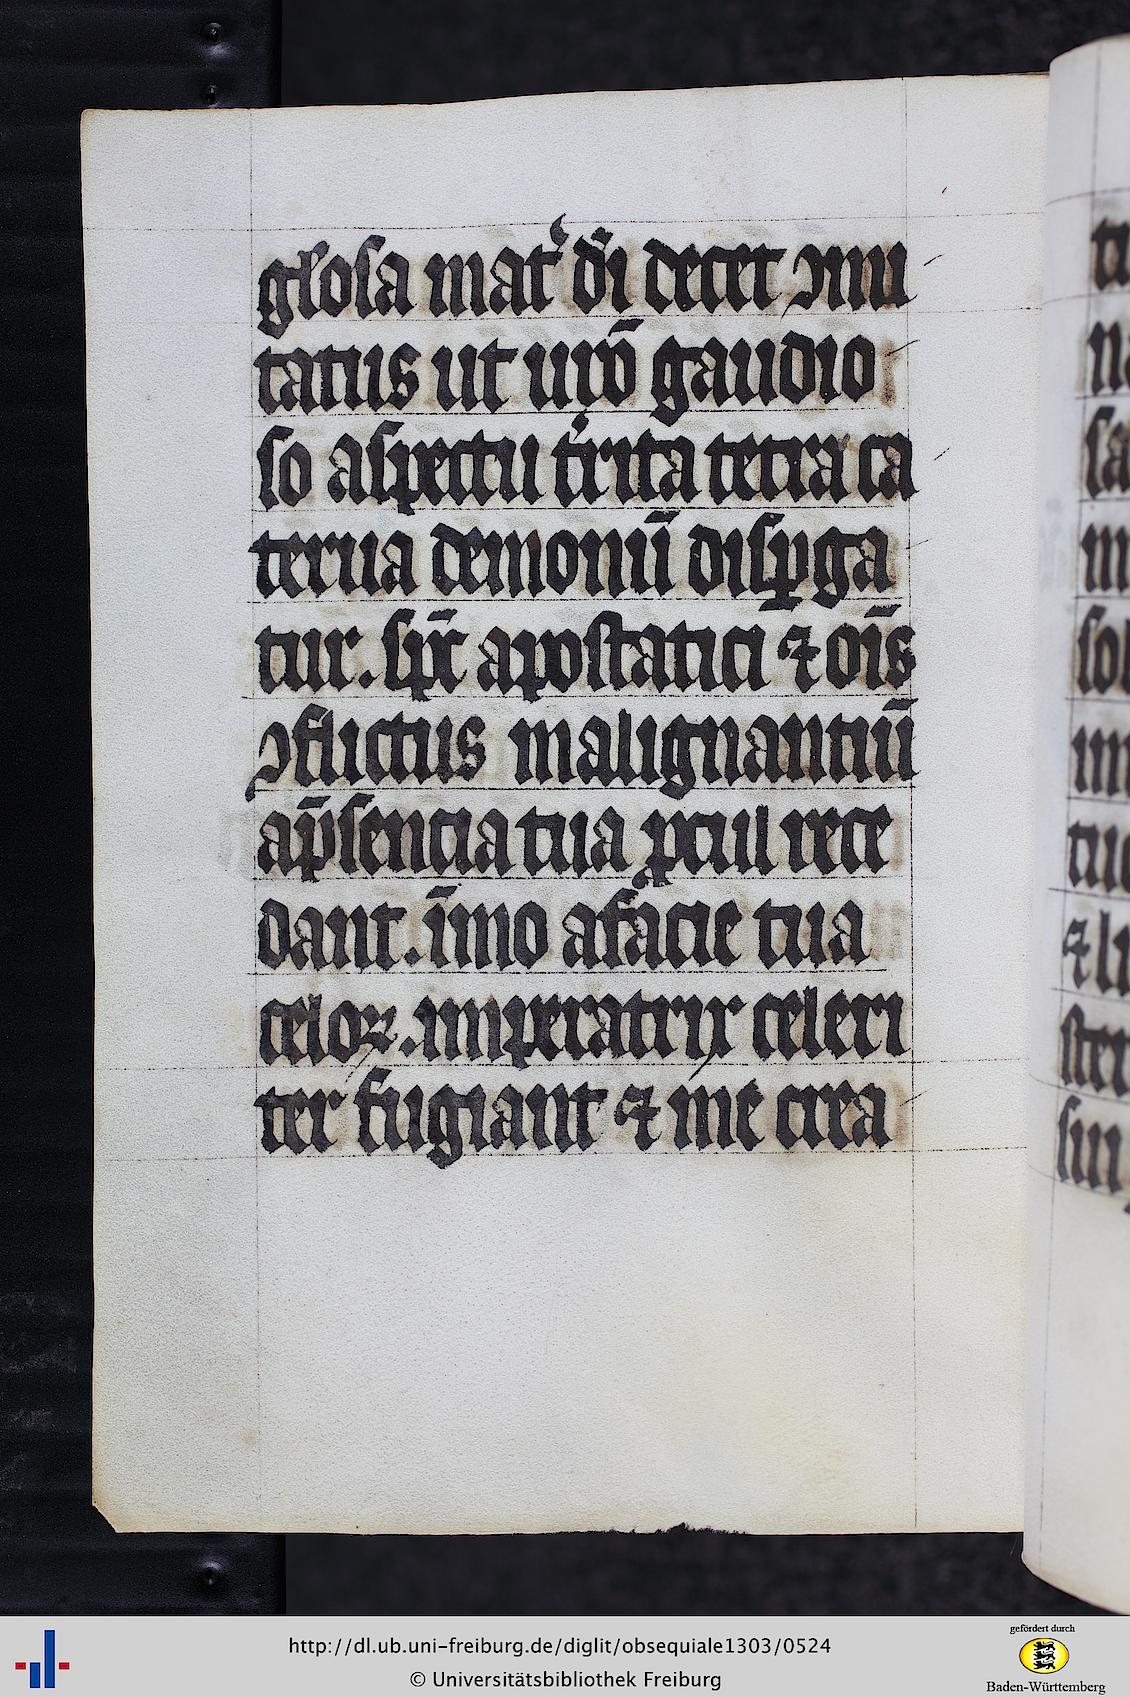 gl̄osa mat᷑ dī decet ꝯmi
tatus ut uiō gaudio
so aspectu t᷑rita tetra ca
terua demonū disꝑga
tur. spc̄ apostatici ⁊ oīs
ꝯflictus malignantiū
ap̄sencia tua ꝓcul rece
dant. īmo afacie tua
celoꝝ. imperatrix celeri
ter fugiant ⁊ me crea
http://dl.ub.uni-freiburg.de/diglit/obsequiale1303/0524
© Universitätsbibliothek Freiburg
gefördert durch
Baden-Württemberg